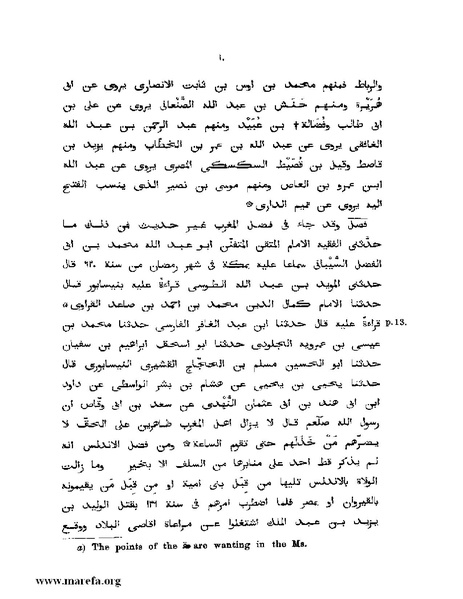 ١٠
والرباط فمنهم محمد بن اوس بن ثابت الانصارى يروى عن ابى
هُرَيْرة ومنهم حَنَش بن عبد الله الصَّنْعانى يروى عن على بن
ابى طالب وفُضالة † بن عُبَيْد ومنهم عبد الرحمن بن عبد الله
الغافقى يروى عن عبد الله بن عمر بن الخطّاب ومنهم يزيد بن
قاصط وقيل بن قُصَيْط السكسكى المصرى يروى عن عبد الله
ابن عمرو بن العاص ومنهم موسى بن نصير الذى ينسب الفتح
اليه يروى عن تميم الدارى ۞
فصل وقد جاء فى فضل المغرب غير حديث فن ذلك ما
حدّثنى الفقيه الامام المتقن المتفنّن ابو عبد الله محمد بن ابى
الفضل الشَّيْبانى سماعا عليه بمكة فى شهر رمضان من سنة ٦٢٠ قال
حدثنى المويد بن عبد الله الطوسى قراءة عليه بنيسابور قال
حدثنا الامام كمال الدين محمد بن احمد بن صاعد القراوى a
قراءة عليه قال حدثنا ابن عبد الغافر الفارسى حدثنا محمد بن p.13.
عيسى بن عمرويه الجلودى حدثنا ابو اسحق ابراهيم بن سفيان
حدثنا ابو الحسين مسلم بن الحجّاج القشيرى النيسابورى قال
حدثنا يحيى بن يحيى عن هشام بن بشر الواسطى عن داود
ابن ابى هند بن ابى عثمان النَّهْدى عن سعد بن ابى وقّاص ان
رسول الله صلّعم قال لا يزال اهل المغرب ظاهرين على الحقّ لا
يضرّهم مَنْ خَذَلَهم حتى تقوم الساعة ۞ ومن فضل الاندلس انه
لم يذكر قط احد على منابرها من السلف الا بخير وما زالت
الولاة بالاندلس تليها من قِبَل بنى امية او من قِبَل مَن يقيمونه
بالقيروان او بمصر فلما اضطرب امرهم فى سنة ١٢٦ بقتل الوليد بن
يزيد بن عبد الملك اشتغلوا عن مراعاة اقاصى البلاد ووقع
a) The points of the are wanting in the Ms.
www.marefa.org